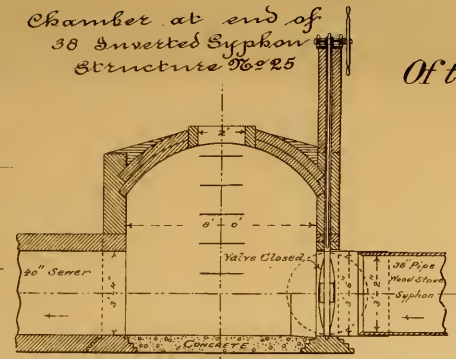 Chamber at end of
38 Inverted Syphon
Structure No 25
Of t
2'
8'-0"
Valve Closed
40" Sewer
3'-4"
3'-6"
3'-2"
38" Pipe
Wood Stave
Syphon
CONCRETE